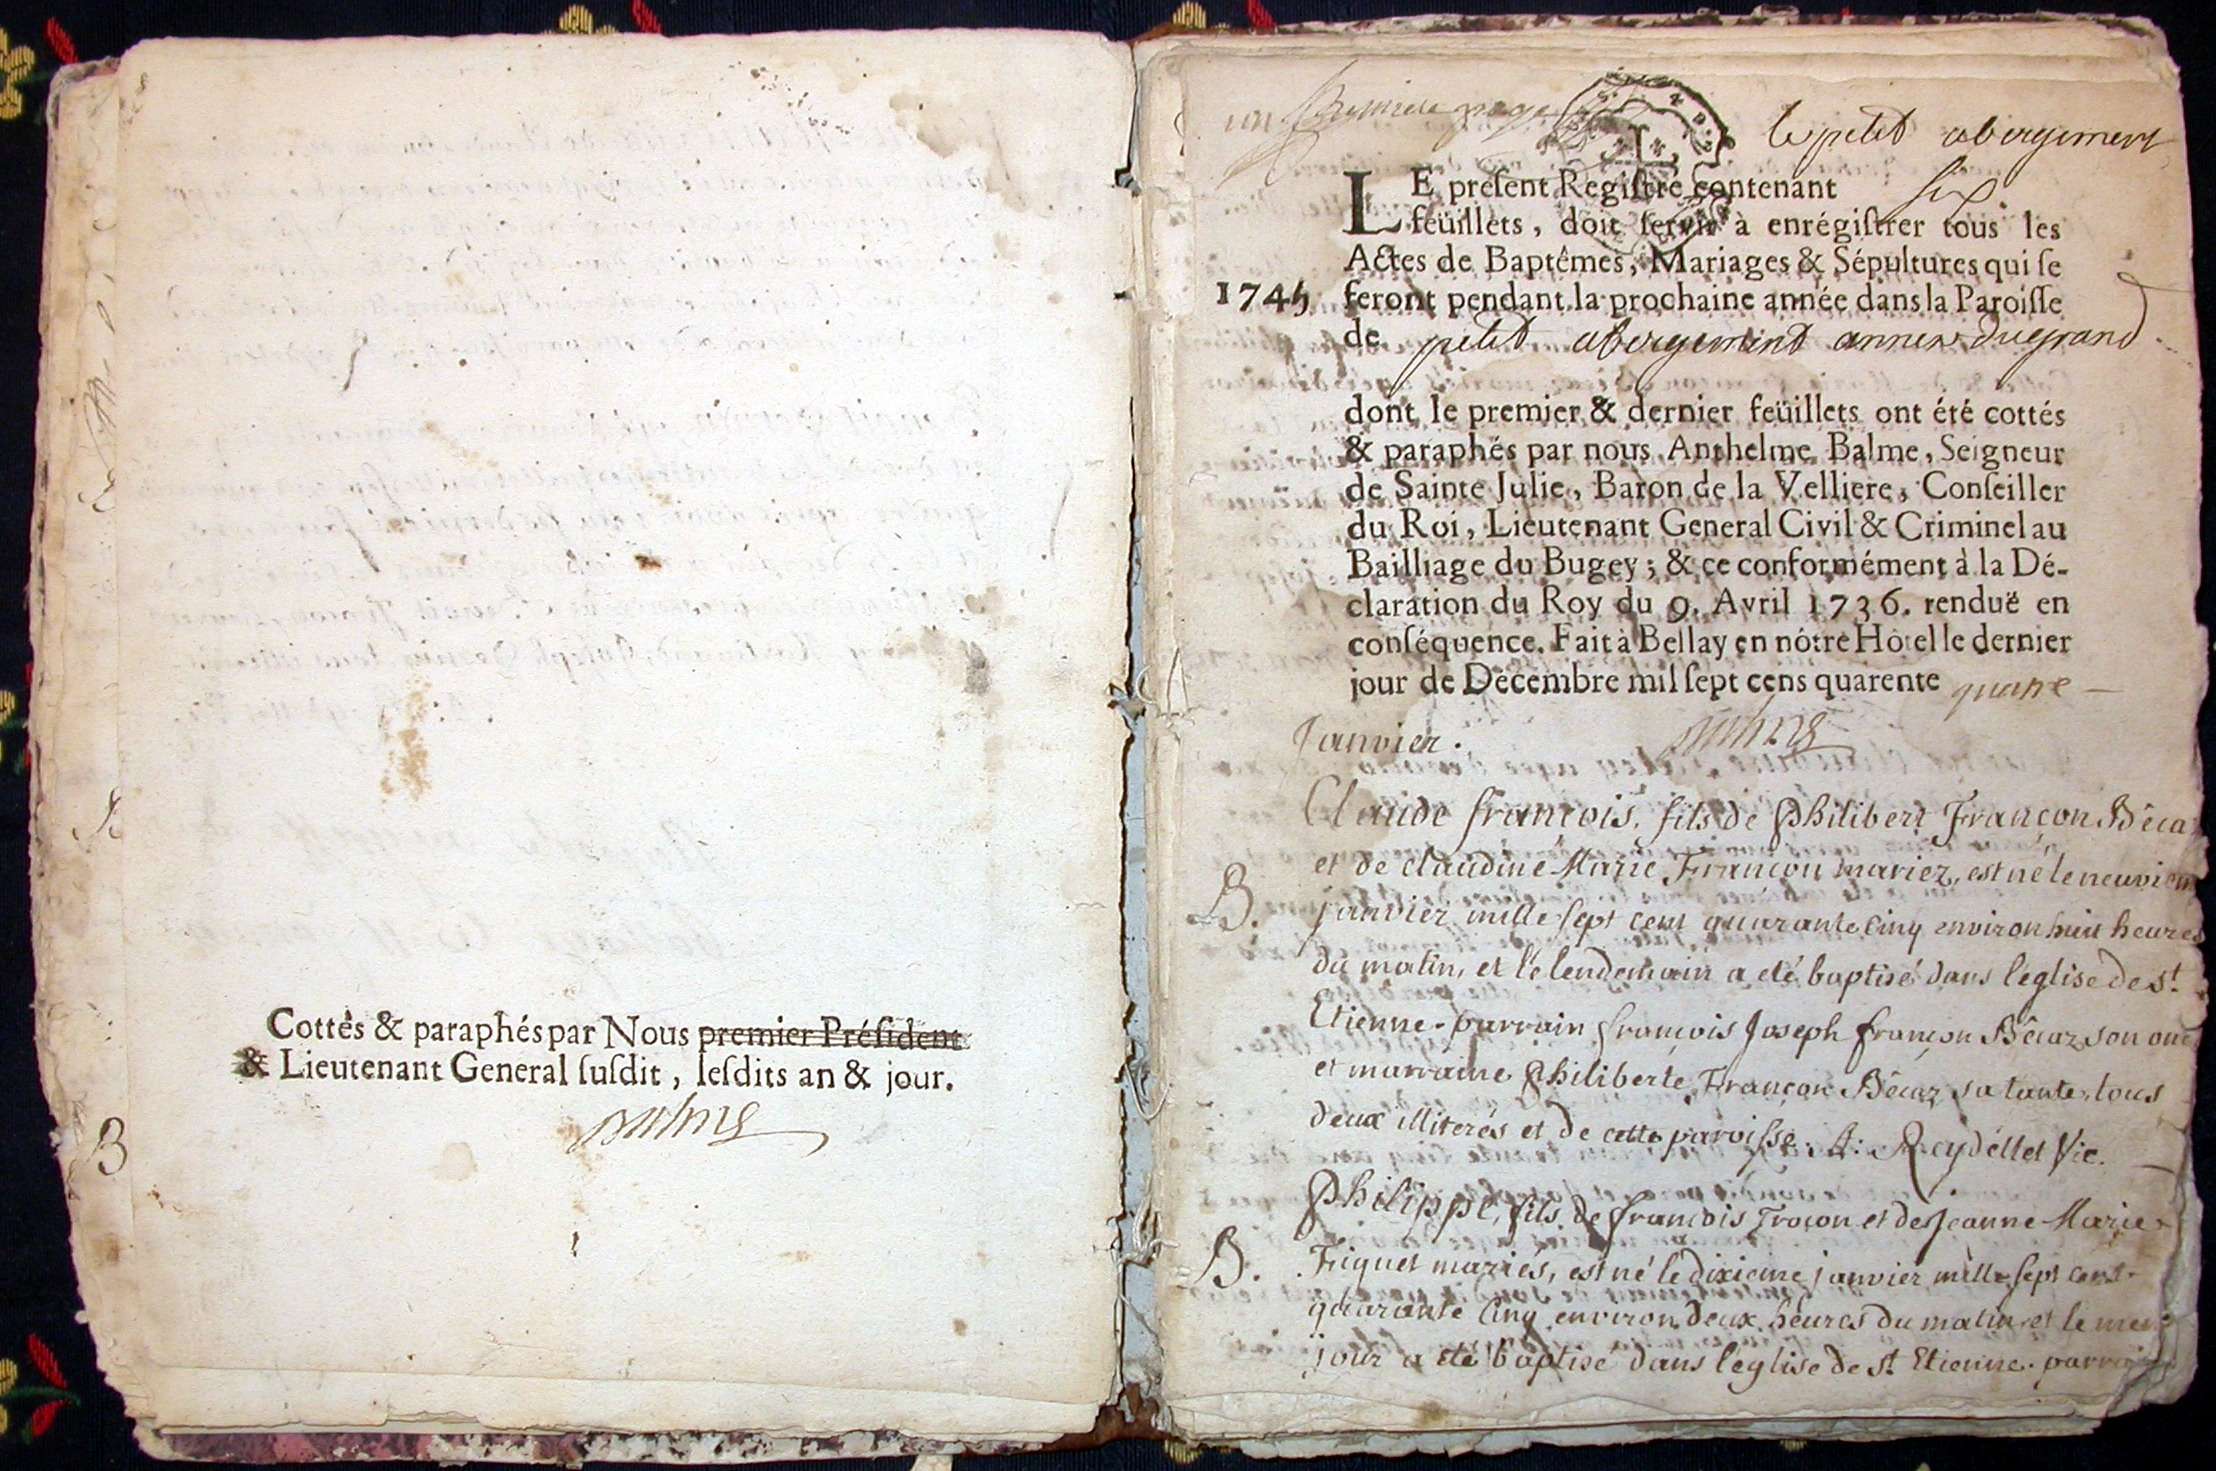 Cottés & paraphés par Nous premier Préſident
& Lieutenant General ſuſdit, leſdits an & jour.
Balme
B
premiere page
le petit abergement
LE preſent Regiſtre contenant six
feüillets, doit ſervir à enrégiſtrer tous les
Actes de Baptêmes, Mariages & Sépultures qui ſe
1745 feront pendant la prochaine année dans la Paroiſſe
de petit abergement annexe du grand
dont le premier & dernier feüillets ont été cottés
& paraphés par nous Anthelme Balme, Seigneur
de Sainte Julie, Baron de la Velliere, Conſeiller
du Roi, Lieutenant General Civil & Criminel au
Bailliage du Bugey; & ce conformément à la Dé-
claration du Roy du 9. Avril 1736. renduë en
conſéquence. Fait à Bellay en nôtre Hôtel le dernier
jour de Décembre mil ſept cens quarente quatre
Balme
Janvier.
Claude francois, fils de Philibert Françon Béca
et de claudine Marie Françon mariez, est né le neuviem
B. janvier mille sept cent quarante cinq environ huit heures
du matin, et le lendemain a eté baptisé dans l'eglise de st.
Etienne. parrain francois Joseph françon Bécaz son onc
et marraine Philiberte Françon Bécaz sa tante, tous
deux illiterés et de cette paroisse. A: Reydellet Vic.
Philippe, fils de francois Troçon et de Jeanne Marie
B. Fuguet mariés, est né le dixieme janvier mille sept cent
quarante cinq environ deux heures du matin et le mem
jour a eté baptisé dans l'eglise de st Etienne. parrain